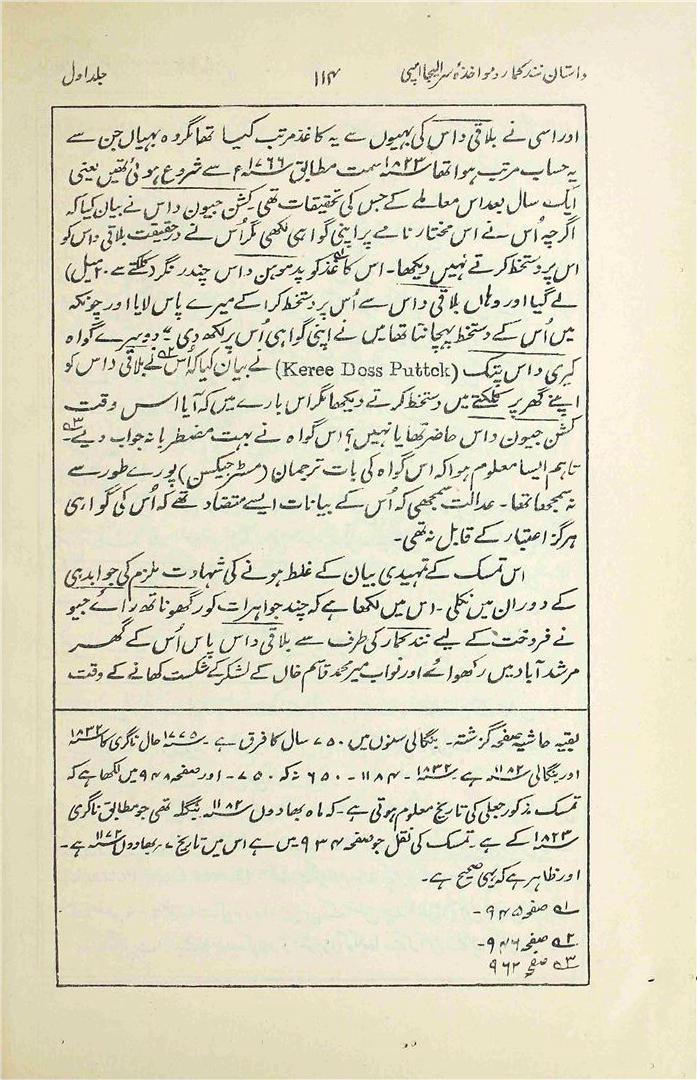 داستان نند کمار و مواخذۂ سر الیجا امپی ۱۱۴ جلد اول
اور اسی نے بلاقی داس کی بہیوں سے یہ کاغذ مرتب کیا تھا مگر وہ بہیاں جن سے
یہ حساب مرتب ہوا تھا ۱۸۲۳ سمت مطابق ۱۷۶۶ء سے شروع ہوئی تھیں یعنی
ایک سال بعد اس معاملے کے جس کی تحقیقات تھی۔ کشن جیون داس نے بیان کیا کہ
اگرچہ اُس نے اس مختار نامے پر اپنی گواہی لکھی مگر اُس نے درحقیقت بلاقی داس کو
اس پر دستخط کرتے نہیں دیکھا۔ اس کاغذ کو پدموہن داس چندر نگر (کلکتے سے ۲۰ میل)
لے گیا اور وہاں بلاقی داس سے اُس پر دستخط کرا کے میرے پاس لایا اور چونکہ
میں اُس کے دستخط پہچانتا تھا میں نے اپنی گواہی اُس پر لکھ دی ؂۱ دوسرے گواہ
کیری داس پتک (Keree Doss Puttck) نے بیان کیا کہ اُس ؂۲ نے بلاقی داس کو
اپنے گھر پر کلکتے میں دستخط کرتے دیکھا مگر اس بارے میں کہ آیا اس وقت
کشن جیون داس حاضر تھا یا نہیں؟ اس گواہ نے بہت مضطربانہ جواب دیے۔ ؂۳
تاہم ایسا معلوم ہوا کہ اس گواہ کی بات ترجمان (مسٹر جیکسن) پورے طور سے
نہ سمجھا تھا۔ عدالت سمجھی کہ اُس کے بیانات ایسے متضاد تھے کہ اُس کی گواہی
ہرگز اعتبار کے قابل نہ تھی۔
اس تمسک کے تمہیدی بیان کے غلط ہونے کی شہادت ملزم کی جوابدہی
کے دوران میں نکلی۔ اس میں لکھا ہے کہ چند جواہرات کو رگھوناتھ رائے جیو
نے فروخت کے لیے نند کمار کی طرف سے بلاقی داس پاس اُس کے گھر
مرشد آباد میں رکھوائے اور نواب میر محمد قاسم خاں کے لشکر کے شکست کھانے کے وقت
بقیہ حاشیہ صفحہ گزشتہ۔ بنگالی سنوں میں ۷۵۰ سال کا فرق ہے۔ ۱۷۷۵ء حال ناگری کا ۱۸۳۲
اور بنگالی ۱۱۸۲ ہے۔ ۱۸۳۲۔ ۱۱۸۴۔ ۶۵۰ نہ کہ ۷۵۰۔ اور صفحہ ۹۴۸ میں لکھا ہے کہ
تمسک مذکور جعلی کی تاریخ معلوم ہوتی ہے۔ کہ ماہ بھادوں ۱۱۸۲ بنگلہ تھی جو مطابق ناگری
۱۸۲۳ کے ہے۔ تمسک کی نقل جو صفحہ ۹۳۴ میں ہے اس میں تاریخ ۷ ر بھادوں ۱۱۷۲ ہے۔
اور ظاہر ہے کہ یہی صحیح ہے۔
؂۱ صفحہ ۹۴۵۔
؂۲ صفحہ ۹۴۶۔
؂۳ صفحہ ۹۶۲